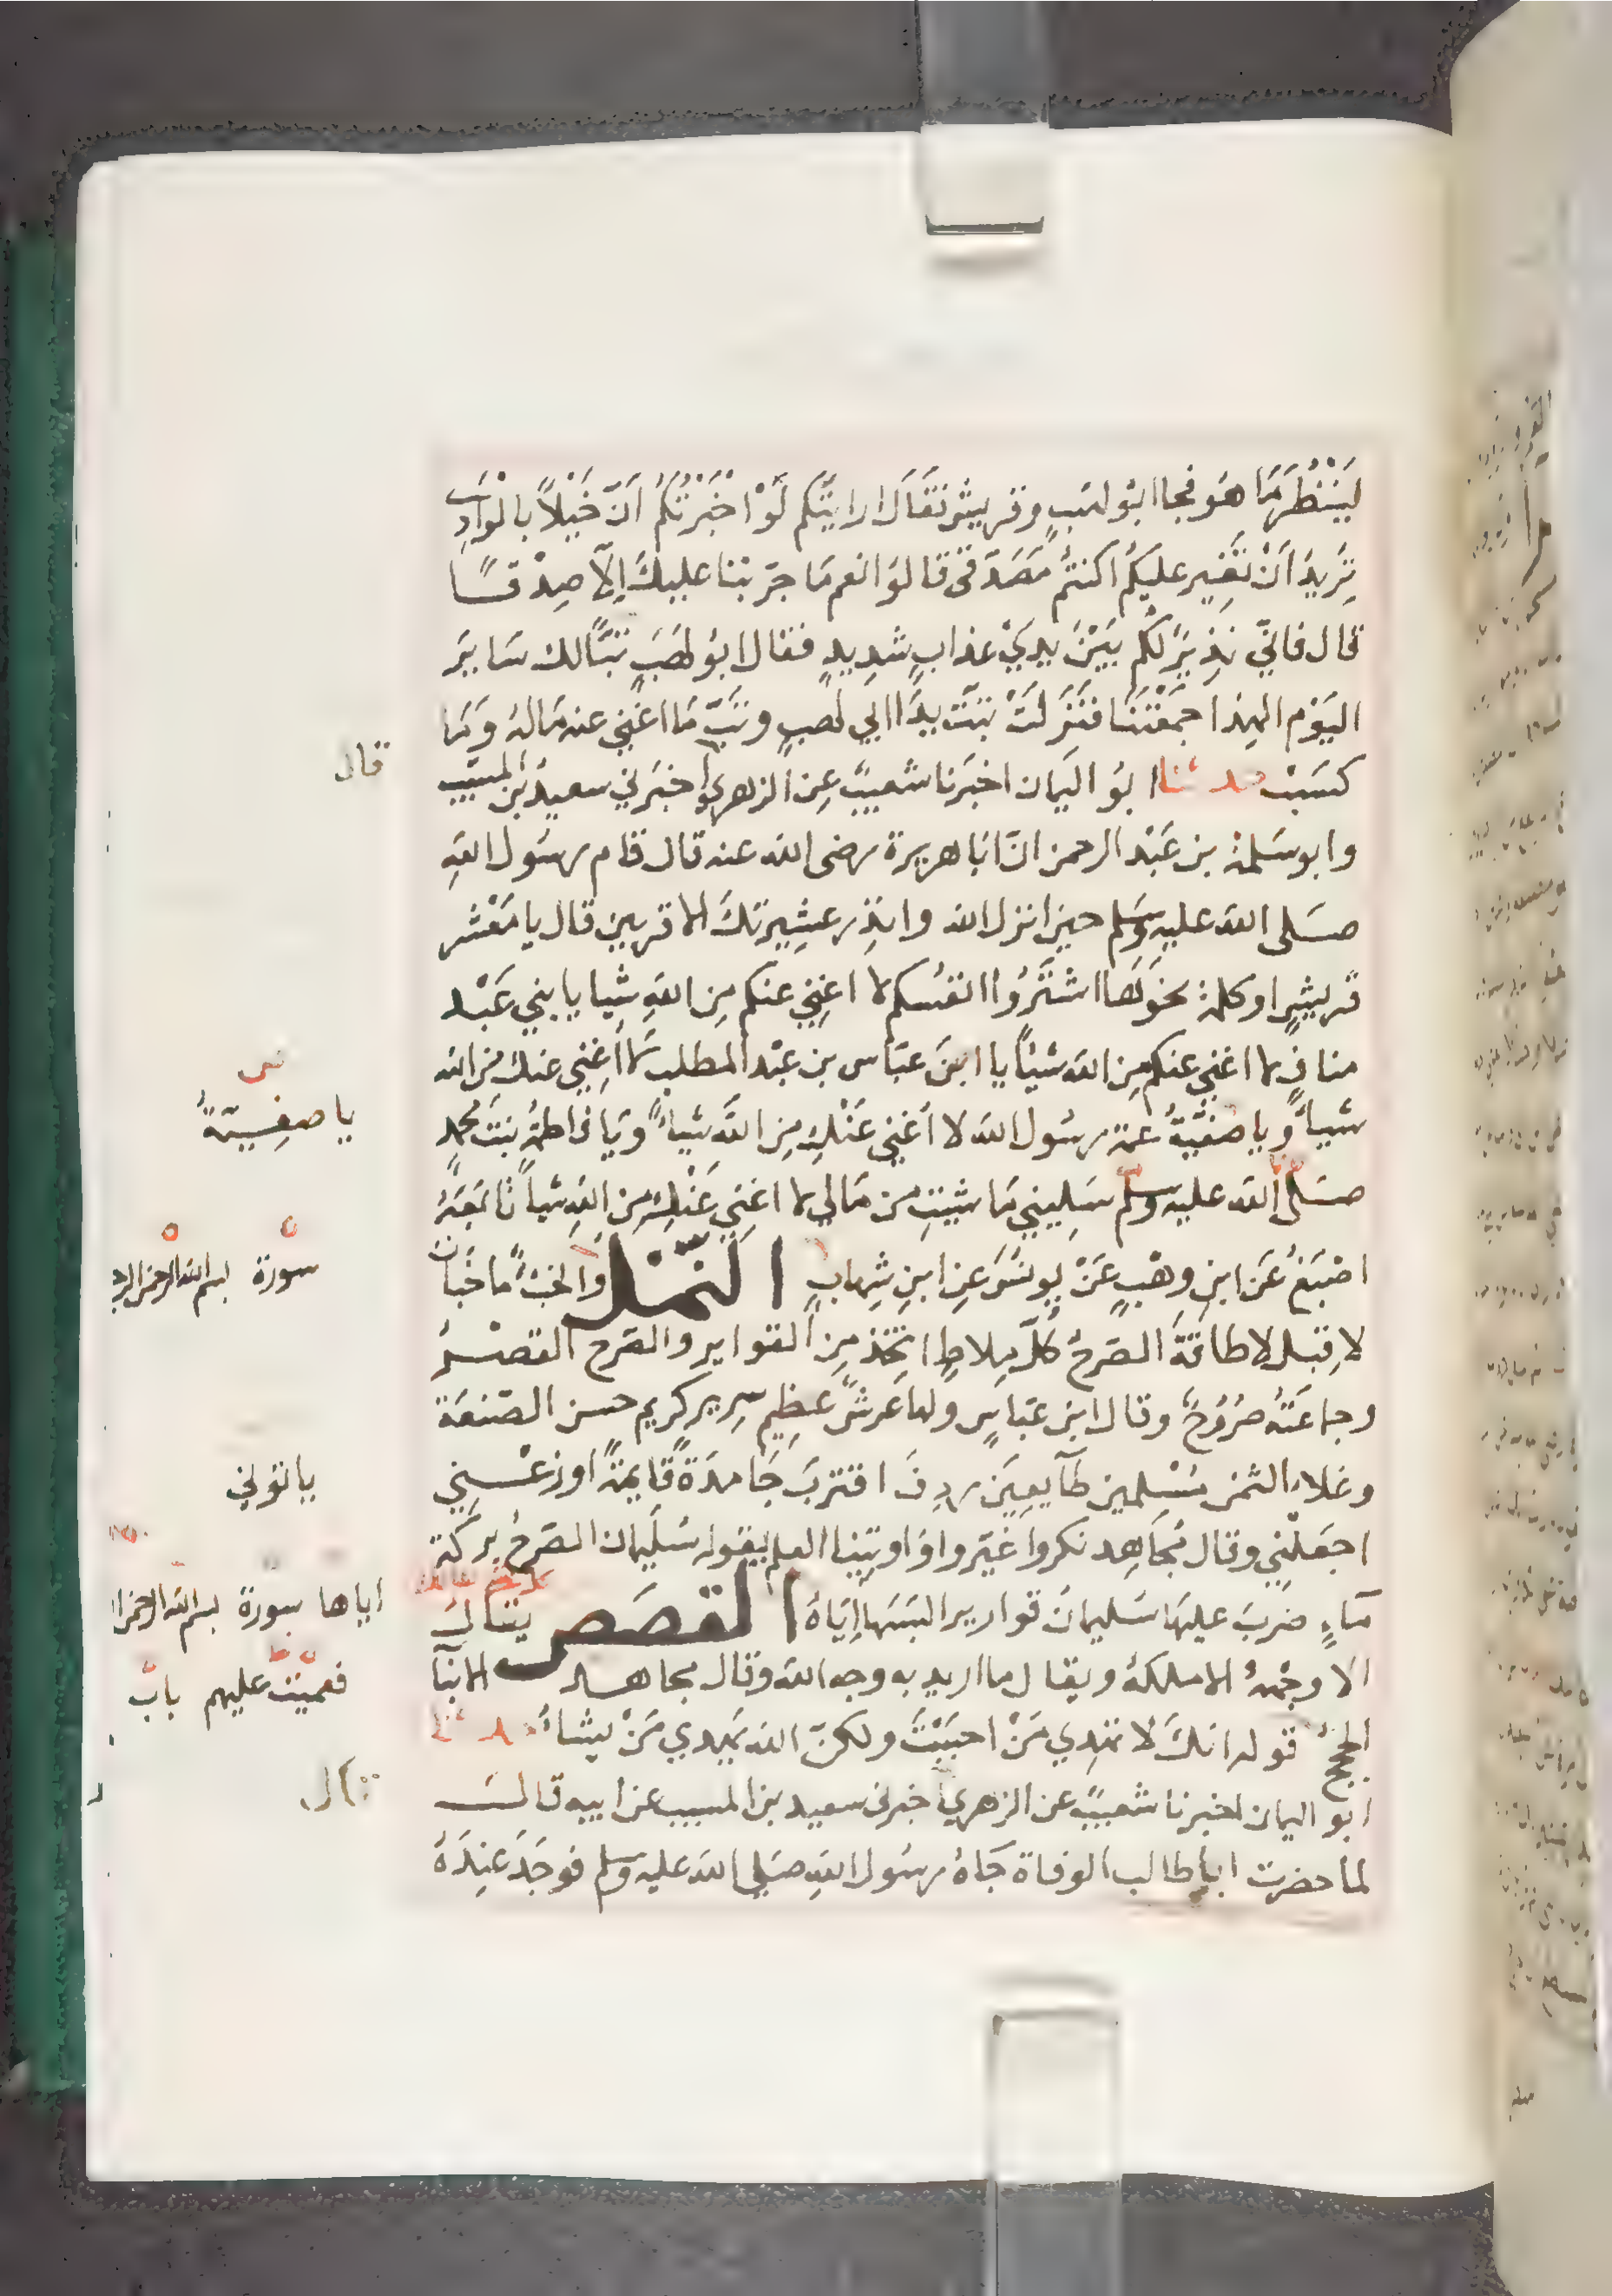 لِيَنْظُرَ مَا هُوَ فجا ابُو لهَبٍ وقريشٌ فقَالَ ارايتَكم لَوْ اخْبَرْتُكُمْ اَنّ خَيْلاً بالْوَادِي
تُرِيدُ اَنْ تُغِيرَ عليكُم اكنتُمْ مُصَدّقىَّ قالوُا نعم مَا جرّبنا عليكَ اِلّا صِدْقًا
قال فانّي نَذِيرٌ لكُم بَيْنَ يديَ عذابٍ شدِيدٍ فقال ابوُ لَهَبٍ تَبًّا لك سَايرَ
اليَوْم الهذا جمعْتَنَا فَنَزَلَتْ تبّت يدَا ابي لهبٍ وتَبّ مَا اغْنى عنه مَالهُ وَمَا
كسَبَ حدثنا ابوُ اليمَان اخبَرنا شعيبٌ عن الزهري اخبَرني سعيدُ بنُ المسيّب
وابو سَلمةَ بن عَبْد الرحمن انّ ابَا هريرة رضى الله عنه قال قام رسُول اللهِ
صَلى الله عليه وسَلم حين انزل الله وانذِر عشِيرتكَ الاقربين قال يا مَعْشر
قريشٍ او كلمةً نحوَهَا اشتَرُوُا انفُسكم لا اغني عنكم مِن اللهِ شيا يا بني عَبْد
منافٍ لا اغني عنكم مِن الله شيئًا يا ابنَ عبَاس بن عبْد المطلب لا اغِني عنك مِن الله
شيأً ويا صفيّةُ عمة رسُول الله لا اُغني عَنْكِ مِن اللَّه شيأً وَيَا فاطمةُ بنتَ محمدٍ
صَلى الله عليه وسلم سَلِيني مَا شيتِ من مَالي لا اغِني عَنْكِ مِن اللهِ شيأً تَابَعَهُ
اصْبَغُ عَن ابنِ وهْبٍ عَنْ يونسَ عن ابنِ شِهابٍ النّمل والخَبْءُ مَا خَبأتَ
لا قِبَلَ لا طاقَةَ الصَّرحُ كُلّ مِلاطٍ اتّخذ مِن القوارير والصّرح القصْرُ
وجماعَتهُ صُرُوُحٌ وقال ابن عَبّاسٍ ولهَا عَرشٌ عَظِيم سرير كريم حسن الصّنعَة
وغلاء الثمن مُسْلمين طآيعِين رَدِفَ اقتربَ جَامِدَةً قَايمةً اوزعْني
اجعَلْني وقال مُجَاهِد نكروا غيّروا واوتينا العلم يقوله سُلَيمان الصّرحُ بركة
مَآءٍ ضرَبَ عليهَا سَليمانُ قوارير البَسَهَا اِيَاهُ القصَص يقال
الا وجْهَهُ الا ملكهُ ويقال ما اريد به وجه الله وقال مجاهد الانبآ
الحجج قوله انكَ لا تهْدِي مَنْ احبَبْتَ ولكنّ الله يَهدي مَنْ يشاءُ حدثنا
ابو اليمان اخبرنا شعيبٌ عن الزهري اخبرنى سعيد بن المسيب عن ابيه قال
لما حضرت ابا طالب الوفاة جَاهُ رسُول اللهِ صَلى الله عليه وسلم فوجَدَ عِندَهُ
قال
يا صفِيّةُ
سورة بسم الله الرحمن الرحيم
اياها سورة بسم الله الرحمن
فعميت عليهم بابٌ
قال